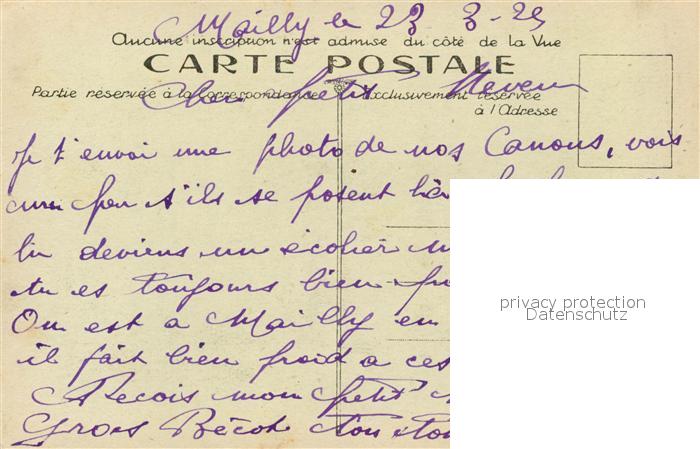 Mailly le 23 3-25
Aucune inscription n'est admise du côté de la Vue
CARTE POSTALE
Partie réservée à la Correspondance
Exclusivement réservée
à l'Adresse
Cher petit Neveu
Je t'envoi une photo de nos Canons, vois
un peu s'ils se posent
tu deviens un écolier
tu es toujours bien
On est a Mailly en
il fait bien froid a ces
Recois mon petit
Gros Bécot ton
privacy protection
Datenschutz